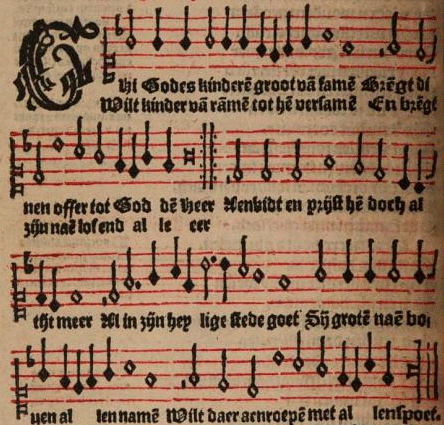 Ghi Godes kinderē groot vā famē Brēgt di
Wilt kinder vā rāmē tot hē versamē En brēgt
nen offer tot God dē Heer Aenbidt en prijst hē doch al
zijn naē lof end al le eer
tijt meer Al in zijn hey lige stede goet Sij grotē naē bo,
uen al len namē Wilt daer aenroepē met al lenspoet.